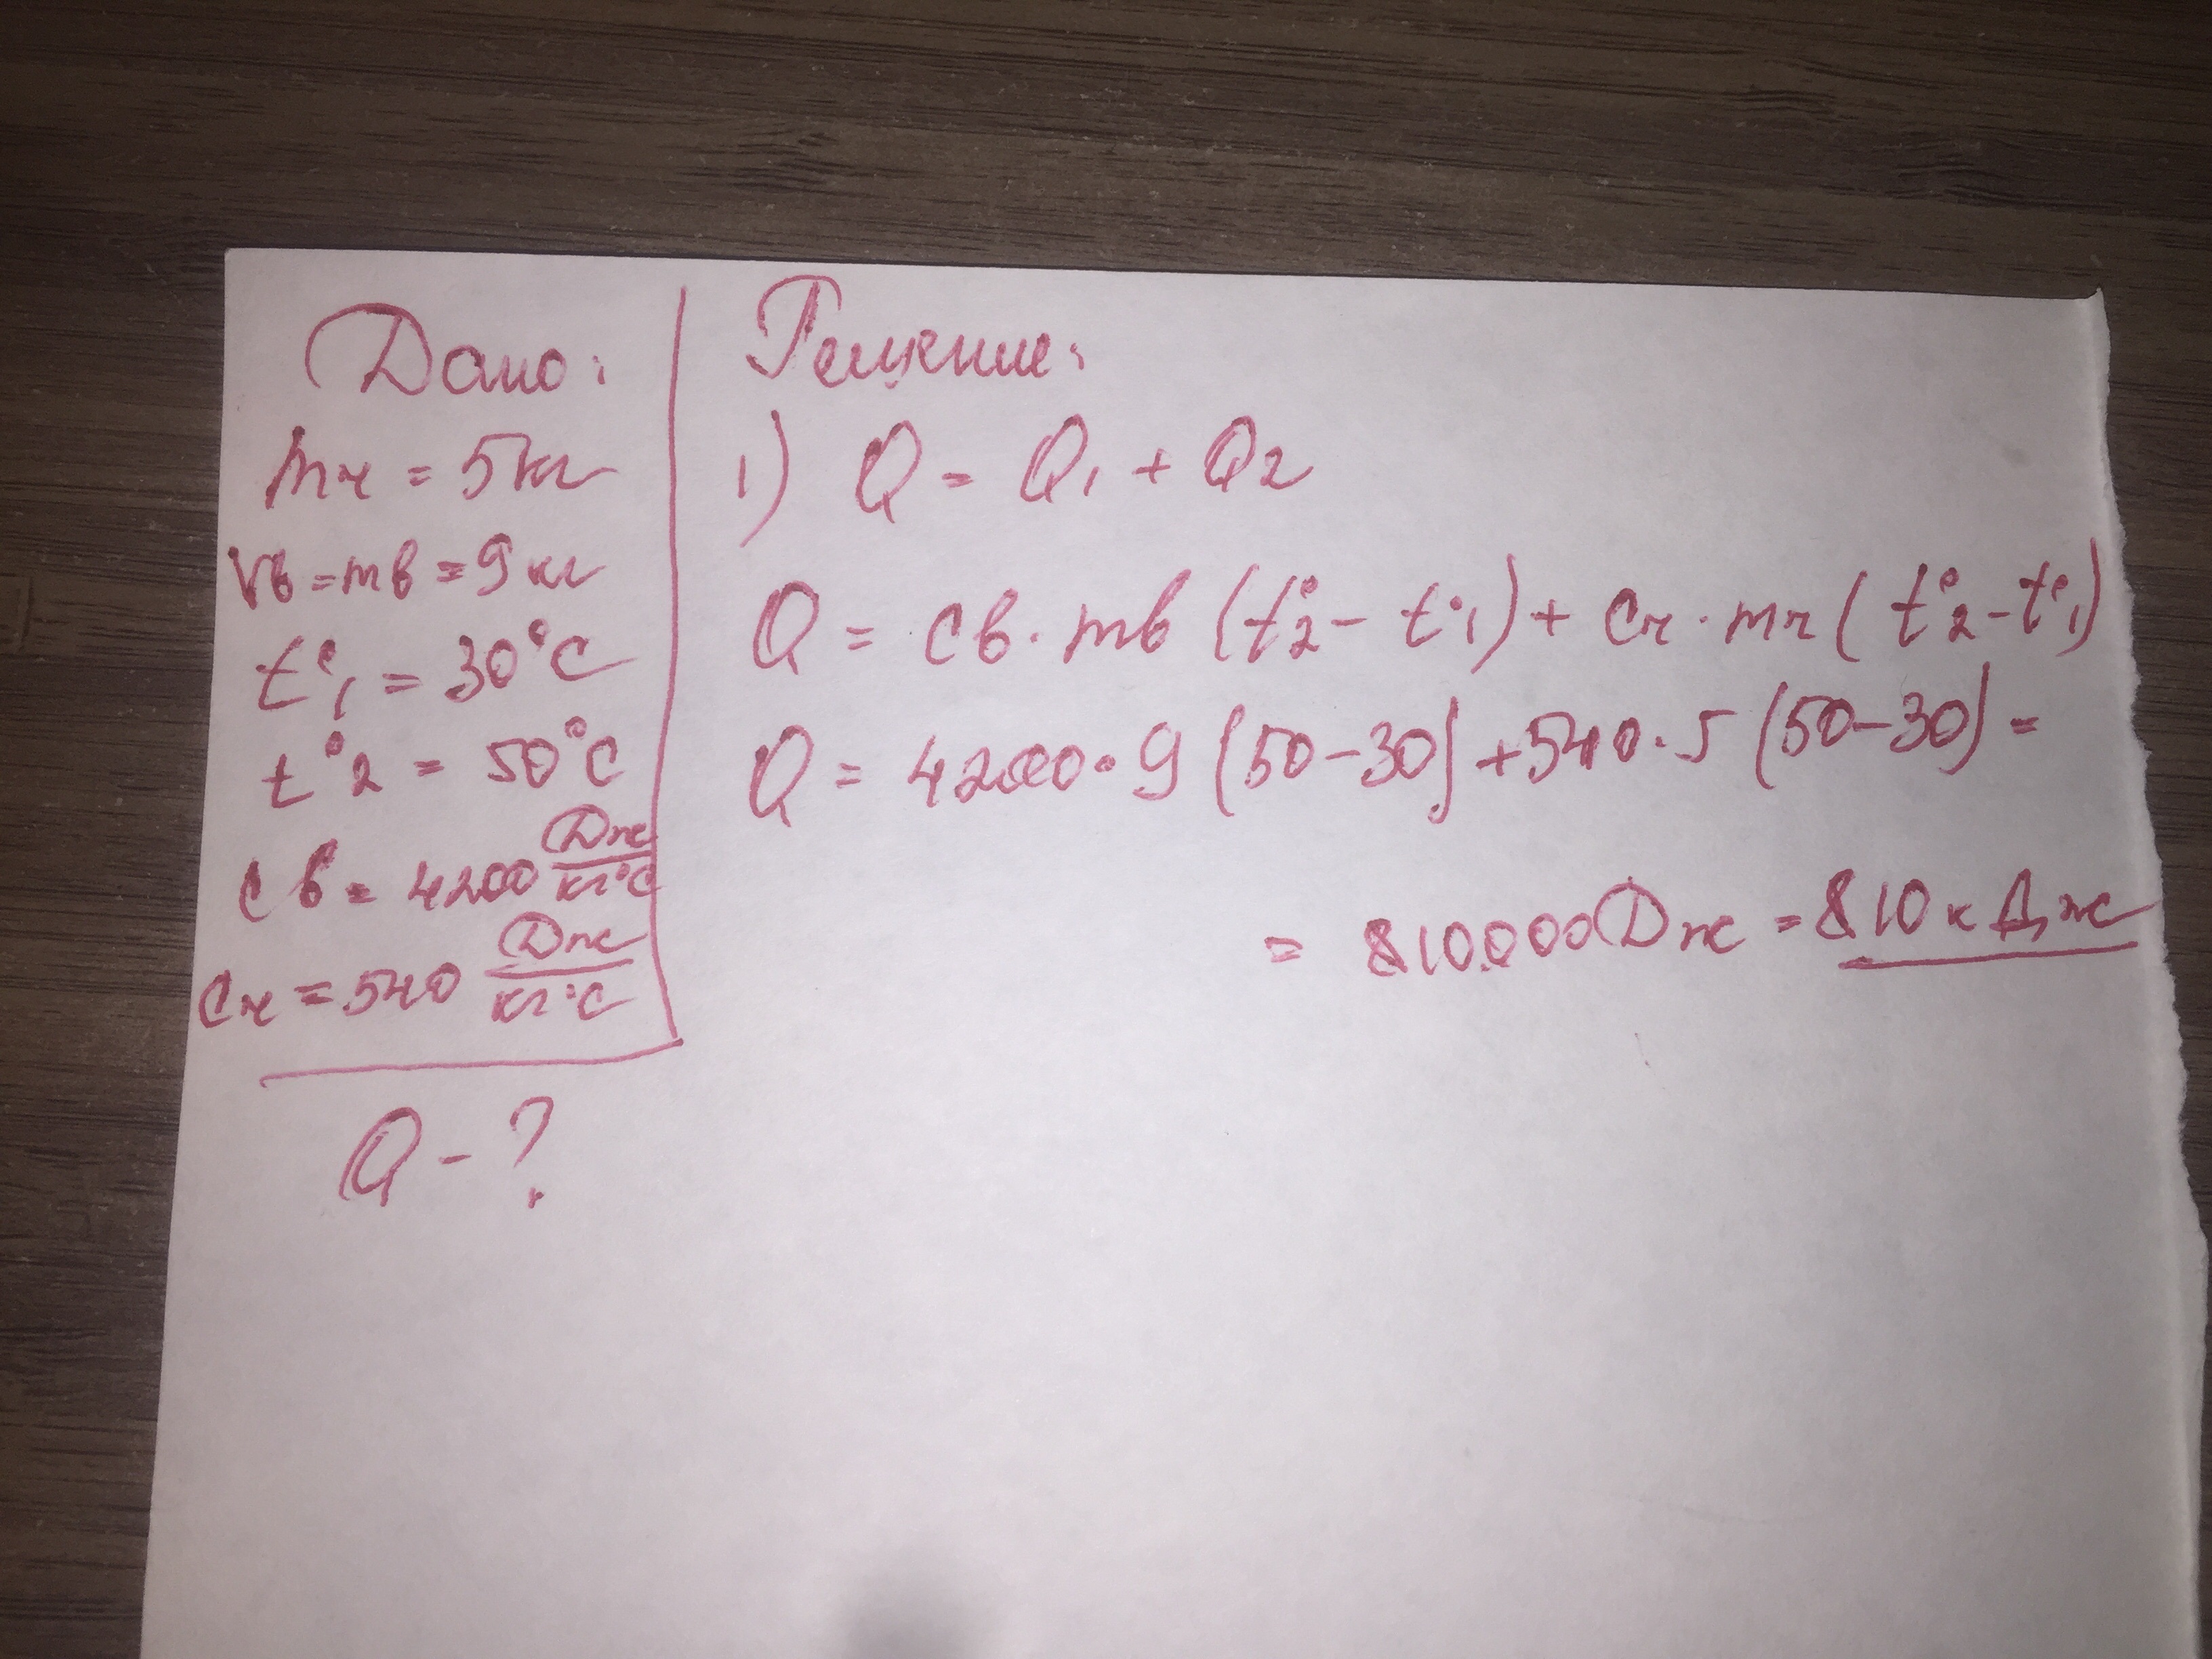 Дано:
mч = 5кг
Vв = mв = 9 кг
t°1 = 30°C
t°2 = 50°C
cв = 4200 Дж/кг°C
cч = 540 Дж/кг°C
Q - ?
Решение:
1) Q = Q1 + Q2
Q = cв · mв (t°2 - t°1) + cч · mч (t°2 - t°1)
Q = 4200 · 9 (50 - 30) + 540 · 5 (50 - 30) =
= 810.000 Дж = 810 кДж